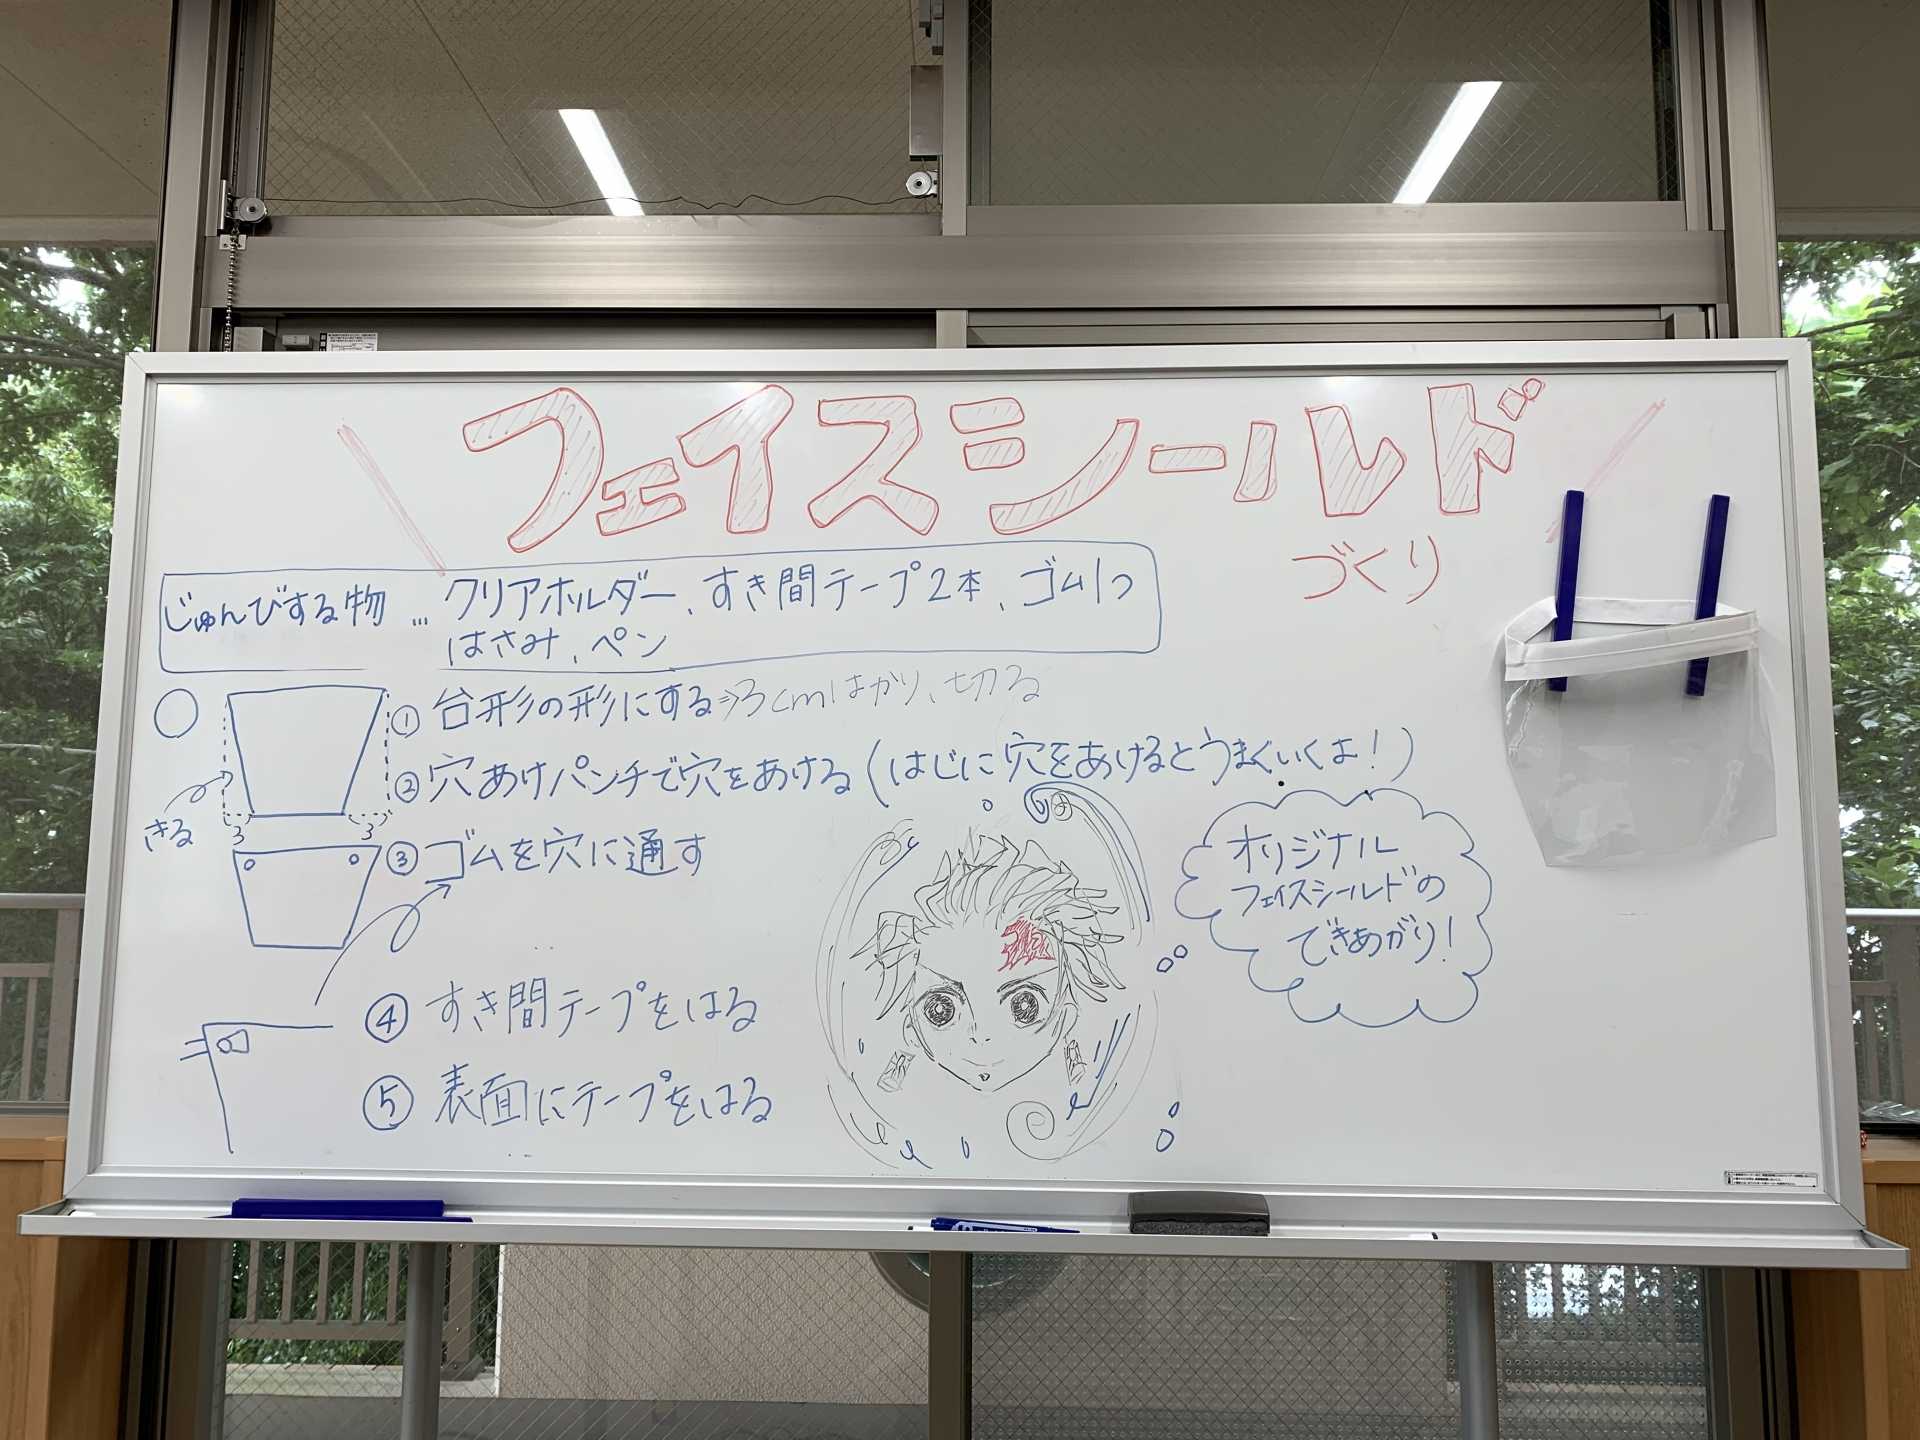 フェイスシールド
づくり
じゅんびする物 … クリアホルダー、すき間テープ2本、ゴム1つ
はさみ、ペン
① 台形の形にする⇒3cmはかり、切る
② 穴あけパンチで穴をあける(はじに穴をあけるとうまくいくよ!)
きる
3 3
③ ゴムを穴に通す
④ すき間テープをはる
⑤ 表面にテープをはる
オリジナル
フェイスシールドの
できあがり!